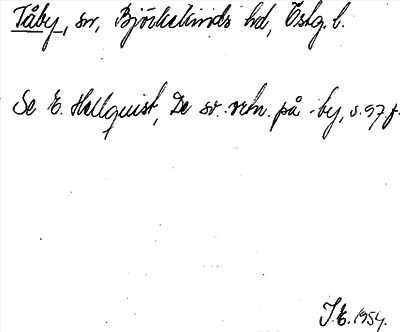 Tåby, sn, Björkekinds hd, Östg. l.
Se E. Hellquist, De sv. ortn. på -by, s. 97 f.
J.E. 1954.